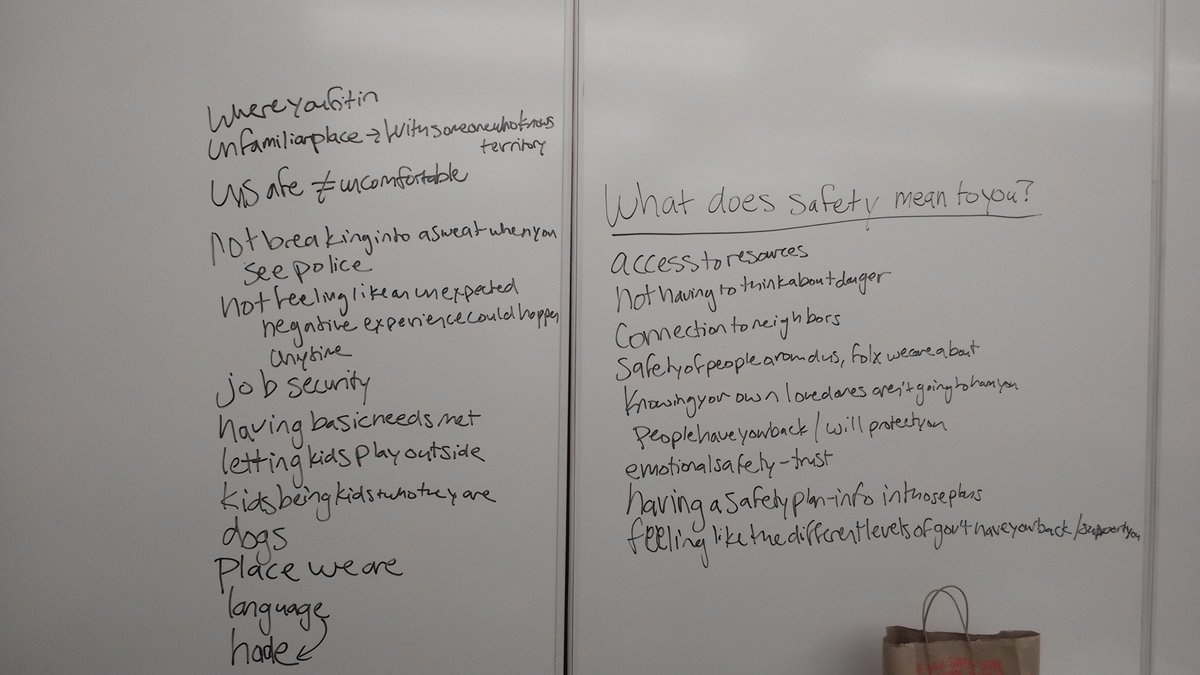 What does safety mean to you?
access to resources
not having to think about danger
Connection to neighbors
Safety of people around us, folx we care about
Knowing your own loved ones aren't going to harm you
People have your back / will protect you
emotional safety - trust
having a safety plan - info in those plans
feeling like the different levels of gov't have your back / support you
Where you fit in
Unfamiliar place → with someone who knows
territory
Unsafe ≠ uncomfortable
Not breaking into a sweat when you
see police
not feeling like an unexpected
negative experience could happen
anytime
job security
having basic needs met
letting kids play outside
Kids being kids + who they are
dogs
Place we are
language